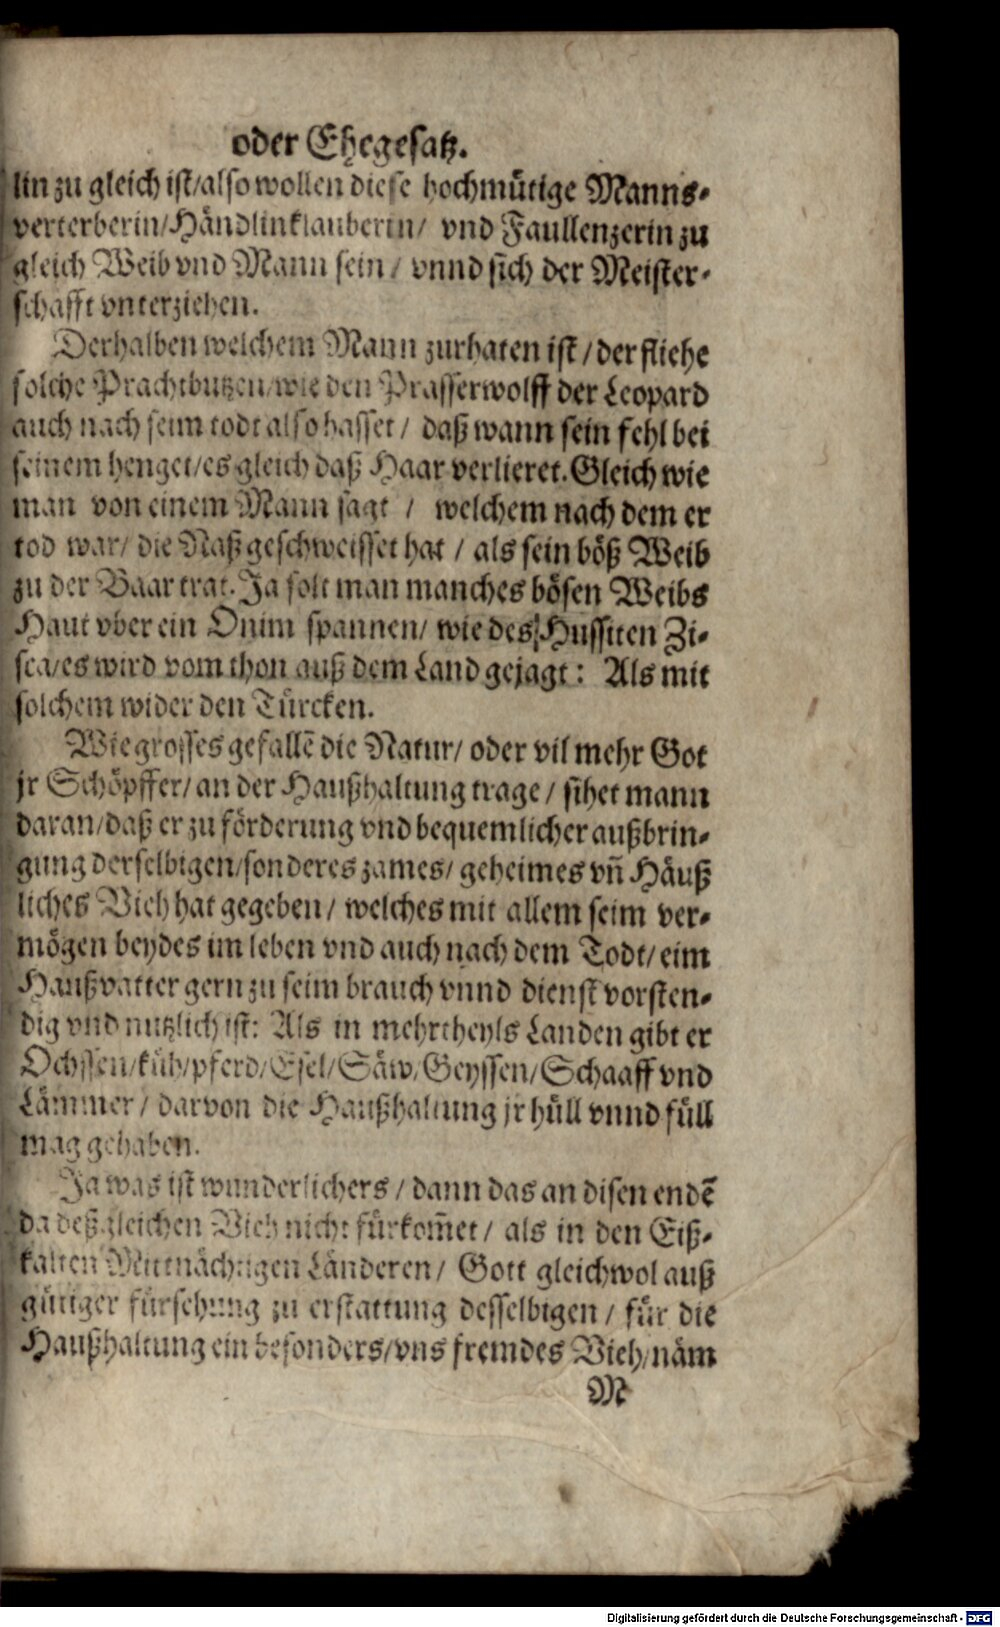 oder Ehegesatz.
lin zu gleich ist/also wollen diese hochmütige Manns-
verterberin/Händlinklauberin/ vnd Faullenzerin zu
gleich Weib vnd Mann sein/ vnnd sich der Meister-
schafft vnterziehen.
Derhalben welchem Mann zurhaten ist/der fliehe
solche Prachtbutzen/wie den Prasserwolff der Leopard
auch nach seim todt also hasset/ daß wann sein fehl bei
seinem henget/es gleich daß Haar verlieret. Gleich wie
man von einem Mann sagt / welchem nach dem er
tod war/ die Naß geschweisset hat / als sein böß Weib
zu der Baar trat. Ja solt man manches bösen Weibs
Haut vber ein Drum spannen/ wie des Hussiten Zi-
sca/es wird vom thon auß dem Land gejagt: Als mit
solchem wider den Türcken.
Wie grosses gefallē die Natur/ oder vil mehr Got
jr Schöpffer/an der Haußhaltung trage/ sihet mann
daran/daß er zu förderung vnd bequemlicher außbrin-
gung derselbigen/sonderes zames/ geheimes vñ Häuß
liches Vieh hat gegeben/ welches mit allem seim ver-
mögen beydes im leben vnd auch nach dem Todt/eim
Haußvatter gern zu seim brauch vnnd dienst vorsten-
dig vnd nutzlich ist: Als in mehrtheyls Landen gibt er
Ochssen/küh/pferd/Esel/Säw/Geyssen/Schaaff vnd
Lämmer/ darvon die Haußhaltung jr hüll vnnd füll
mag gehaben.
Ja was ist wunderlichers/ dann das an disen endē
da deßgleichen Vieh nicht fürkom̄et/ als in den Eiß-
kalten Mittnächtigen Länderen/ Gott gleichwol auß
gütiger fürsehung zu erstattung desselbigen/ für die
Haußhaltung ein besonders/vns fremdes Vieh/näm
M
Digitalisierung gefördert durch die Deutsche Forschungsgemeinschaft - DFG